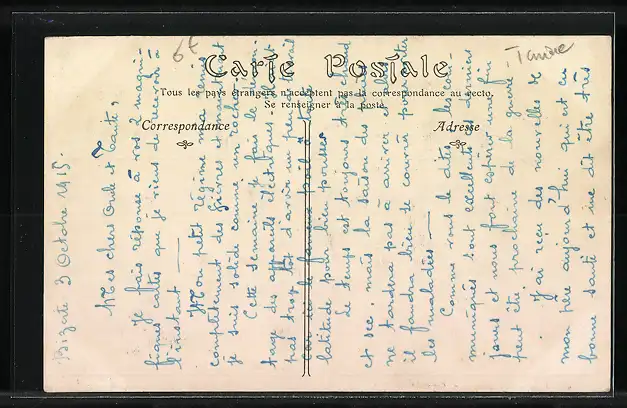 6€
Tunise
Carte Postale
Tous les pays étrangers n'acceptent pas la correspondance au recto.
Se renseigner à la poste.
Correspondance
Adresse
Bizerte 3 Octobre 1915.
Mes chers Oncle et Tante,
Je fais réponse à vos 2 magni-
fiques cartes que je viens de recevoir à
l'instant
Mon petit régime m'a remis
complètement des fièvres et maintenant
je suis solide comme un rocher.
Cette semaine je fais le
des appareils électriques. Il n'est
pas trop tôt d'avoir un peu de travail
car
latitude pour bien pousser
Le temps est toujours très chaud
et sec. mais la saison des
ne tardera pas à arriver et
il faudra bien se couvrir pour éviter
les maladies
Comme vous le dites, les com-
muniqués sont excellents ces derniers
jours et nous font espérer une fin
peut être prochaine de la guerre.
J'ai reçu des nouvelles de
mon père aujourd'hui qui est en
bonne santé et me dit être très